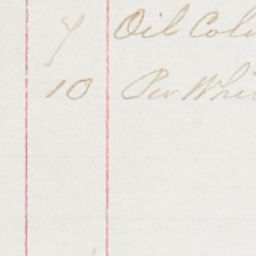 Oil Col
10 Pur Whi